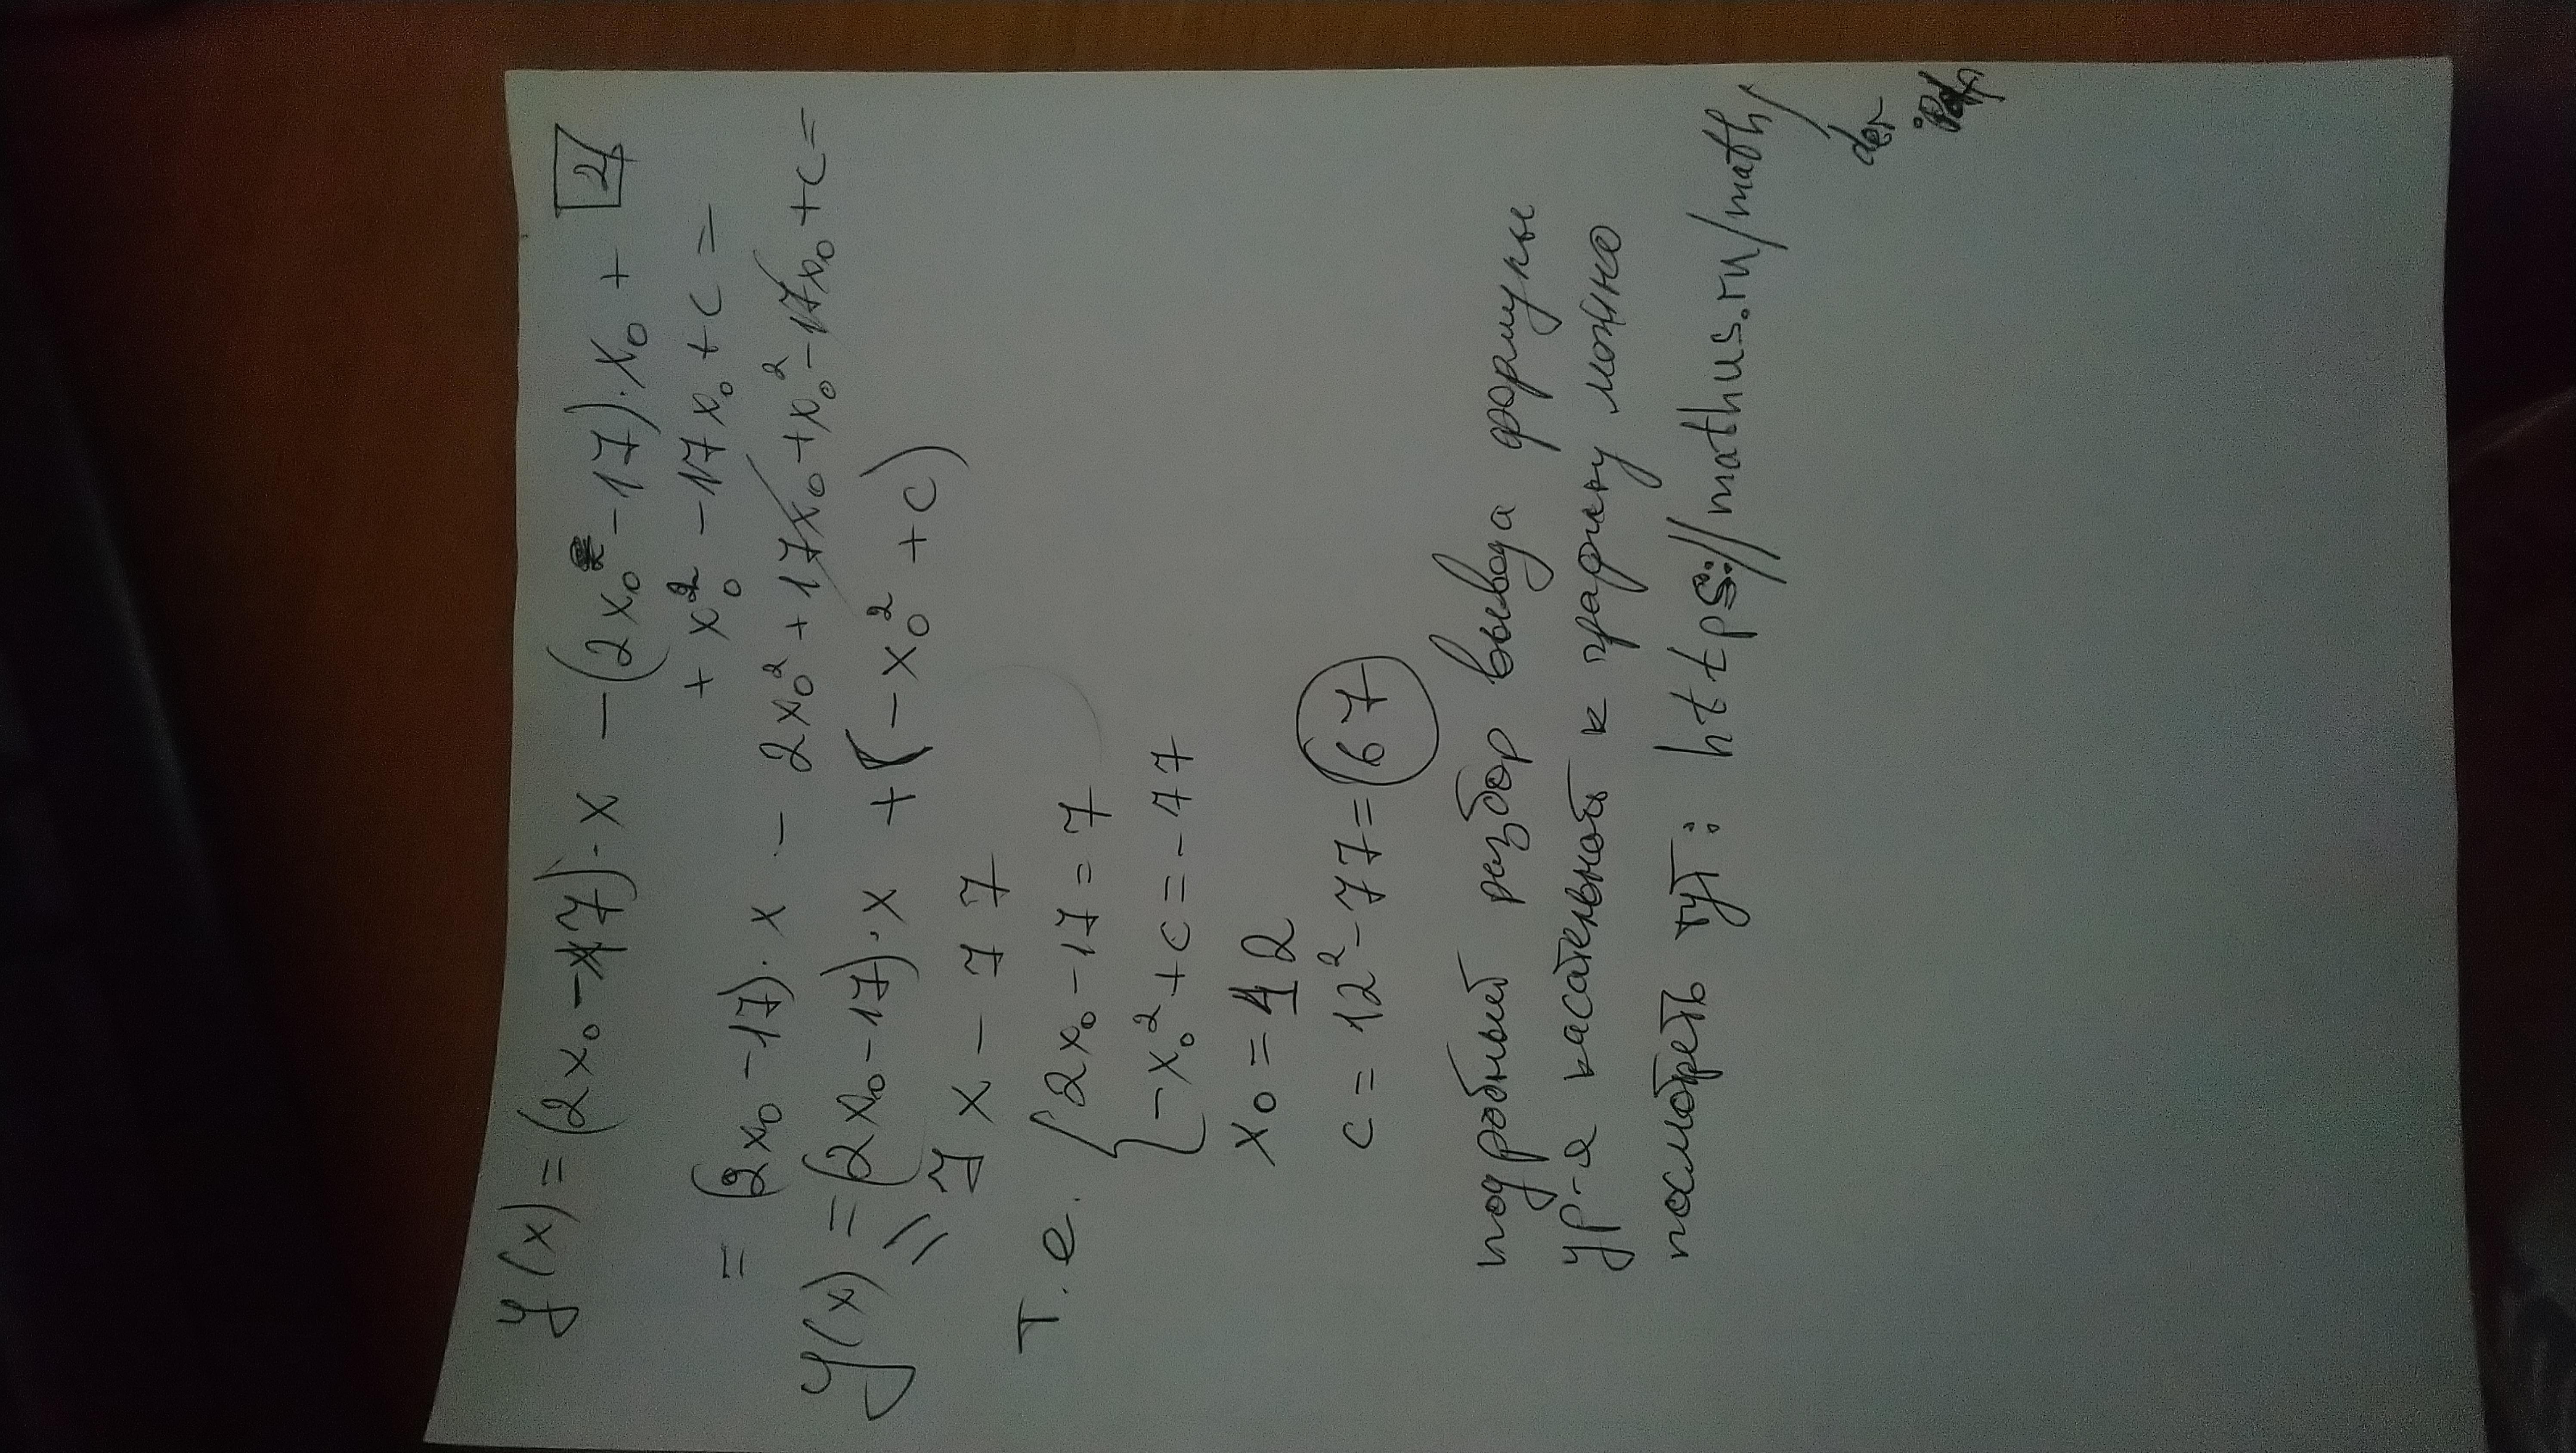 2
y(x) = (2x₀ - 17)·x - (2x₀ - 17)·x₀ +
+ x₀² - 17x₀ + c =
= (2x₀ - 17)·x - 2x₀² + 17x₀ + x₀² - 17x₀ + c =
y(x) = (2x₀ - 17)·x + (-x₀² + c)
=
7x - 77
т.е. { 2x₀ - 17 = 7
-x₀² + c = -77
x₀ = 12
c = 12² - 77 = 67
подробный разбор вывода формулы
ур-я касательной к графику можно
посмотреть тут: https://mathus.ru/math/
der
.pdf